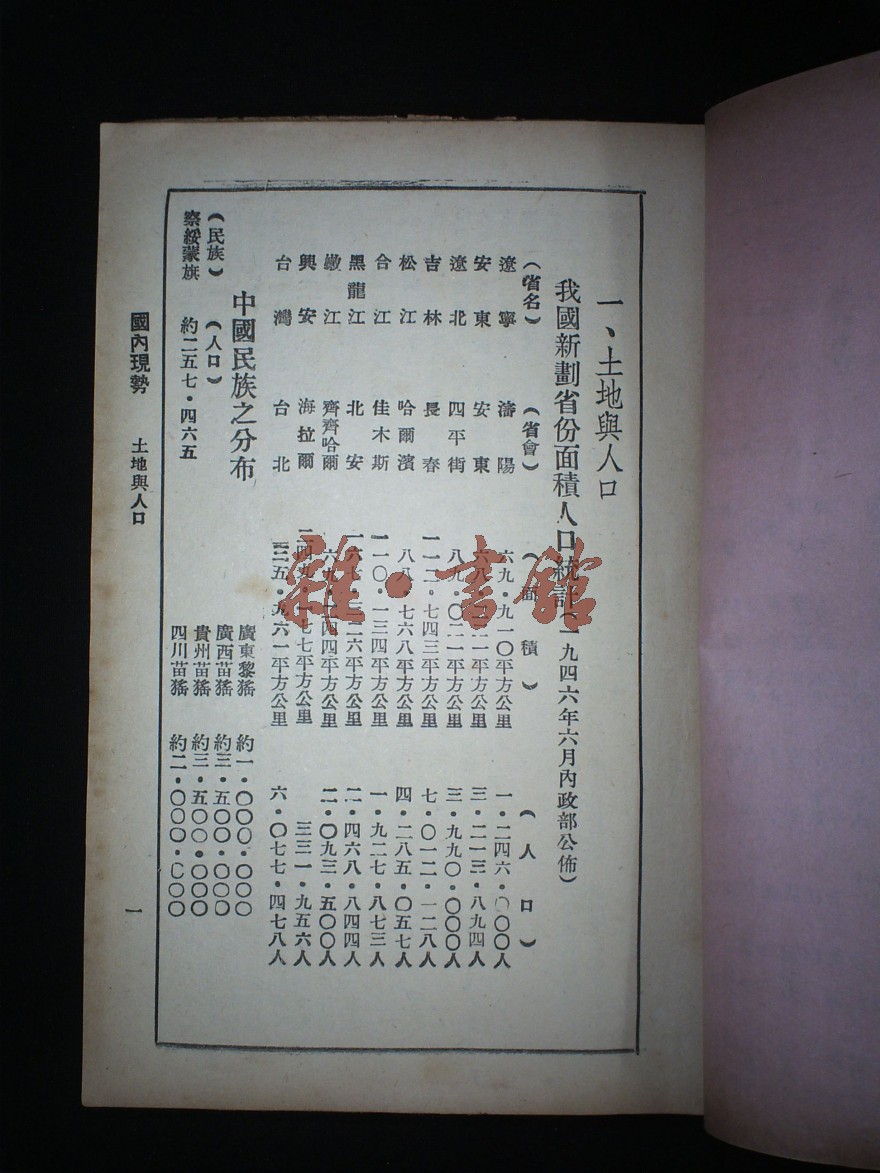 一、土地與人口
我國新劃省份面積人口統計(一九四六年六月內政部公佈)
(省名) (省會) (面積) (人口)
遼寧 瀋陽 六九・九一〇平方公里 一・二四六・〇〇〇人
安東 安東 平方公里 三・二一三・八九四人
遼北 四平街 八九・〇二一平方公里 三・九九〇・〇〇〇人
吉林 長春 一一二・七四三平方公里 七・〇一二・一二八人
松江 哈爾濱 八八・七六八平方公里 四・二八五・〇五七人
合江 佳木斯 一一〇・一三四平方公里 一・九二七・八七三人
黑龍江 北安 平方公里 二・四六八・八四四人
嫩江 齊齊哈爾 平方公里 二・〇九三・五〇〇人
興安 海拉爾 平方公里 三三一・九五六人
台灣 台北 三五・九六一平方公里 六・〇七七・四七八人
中國民族之分布
(民族) (人口)
察綏蒙族 約二五七・四六五
廣東黎猺 約一・〇〇〇・〇〇〇
廣西苗猺 約三・五〇〇・〇〇〇
貴州苗猺 約三・五〇〇・〇〇〇
四川苗猺 約二・〇〇〇・〇〇〇
國內現勢 土地與人口 一
雜・書館